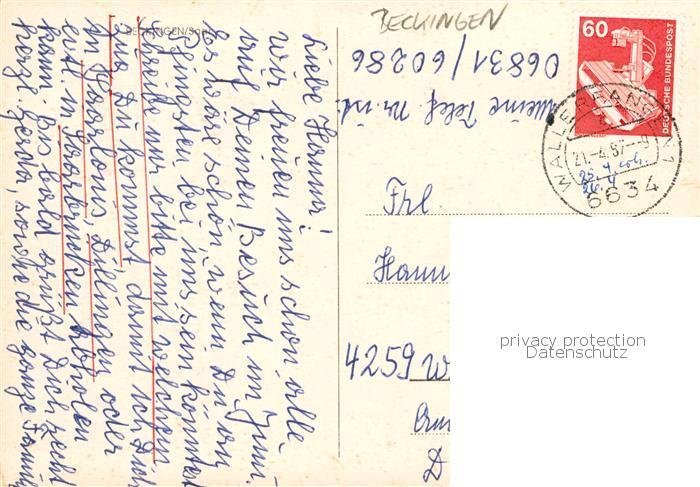 BECKINGEN/Saar
BECKINGEN
Liebe Hanna!
Wir freuen uns schon alle
auf Deinen Besuch im Juni.
Es wäre schön, wenn Du an
Pfingsten bei uns sein könntest
Schreibe mir bitte mit welchem
Zug Du kommst damit ich Dich
in Saarlouis, Dillingen oder
evtl. in Saarbrücken abholen
kann. Bis bald grüßt Dich recht
herzl. Gerda, sowie die ganze Familie
Meine Telef. Nr. ist
06831/60286
60
DEUTSCHE BUNDESPOST
WALLERFANGEN 1
21.-4.87
6634
Frl.
Hann
4259 W
D
privacy protection
Datenschutz